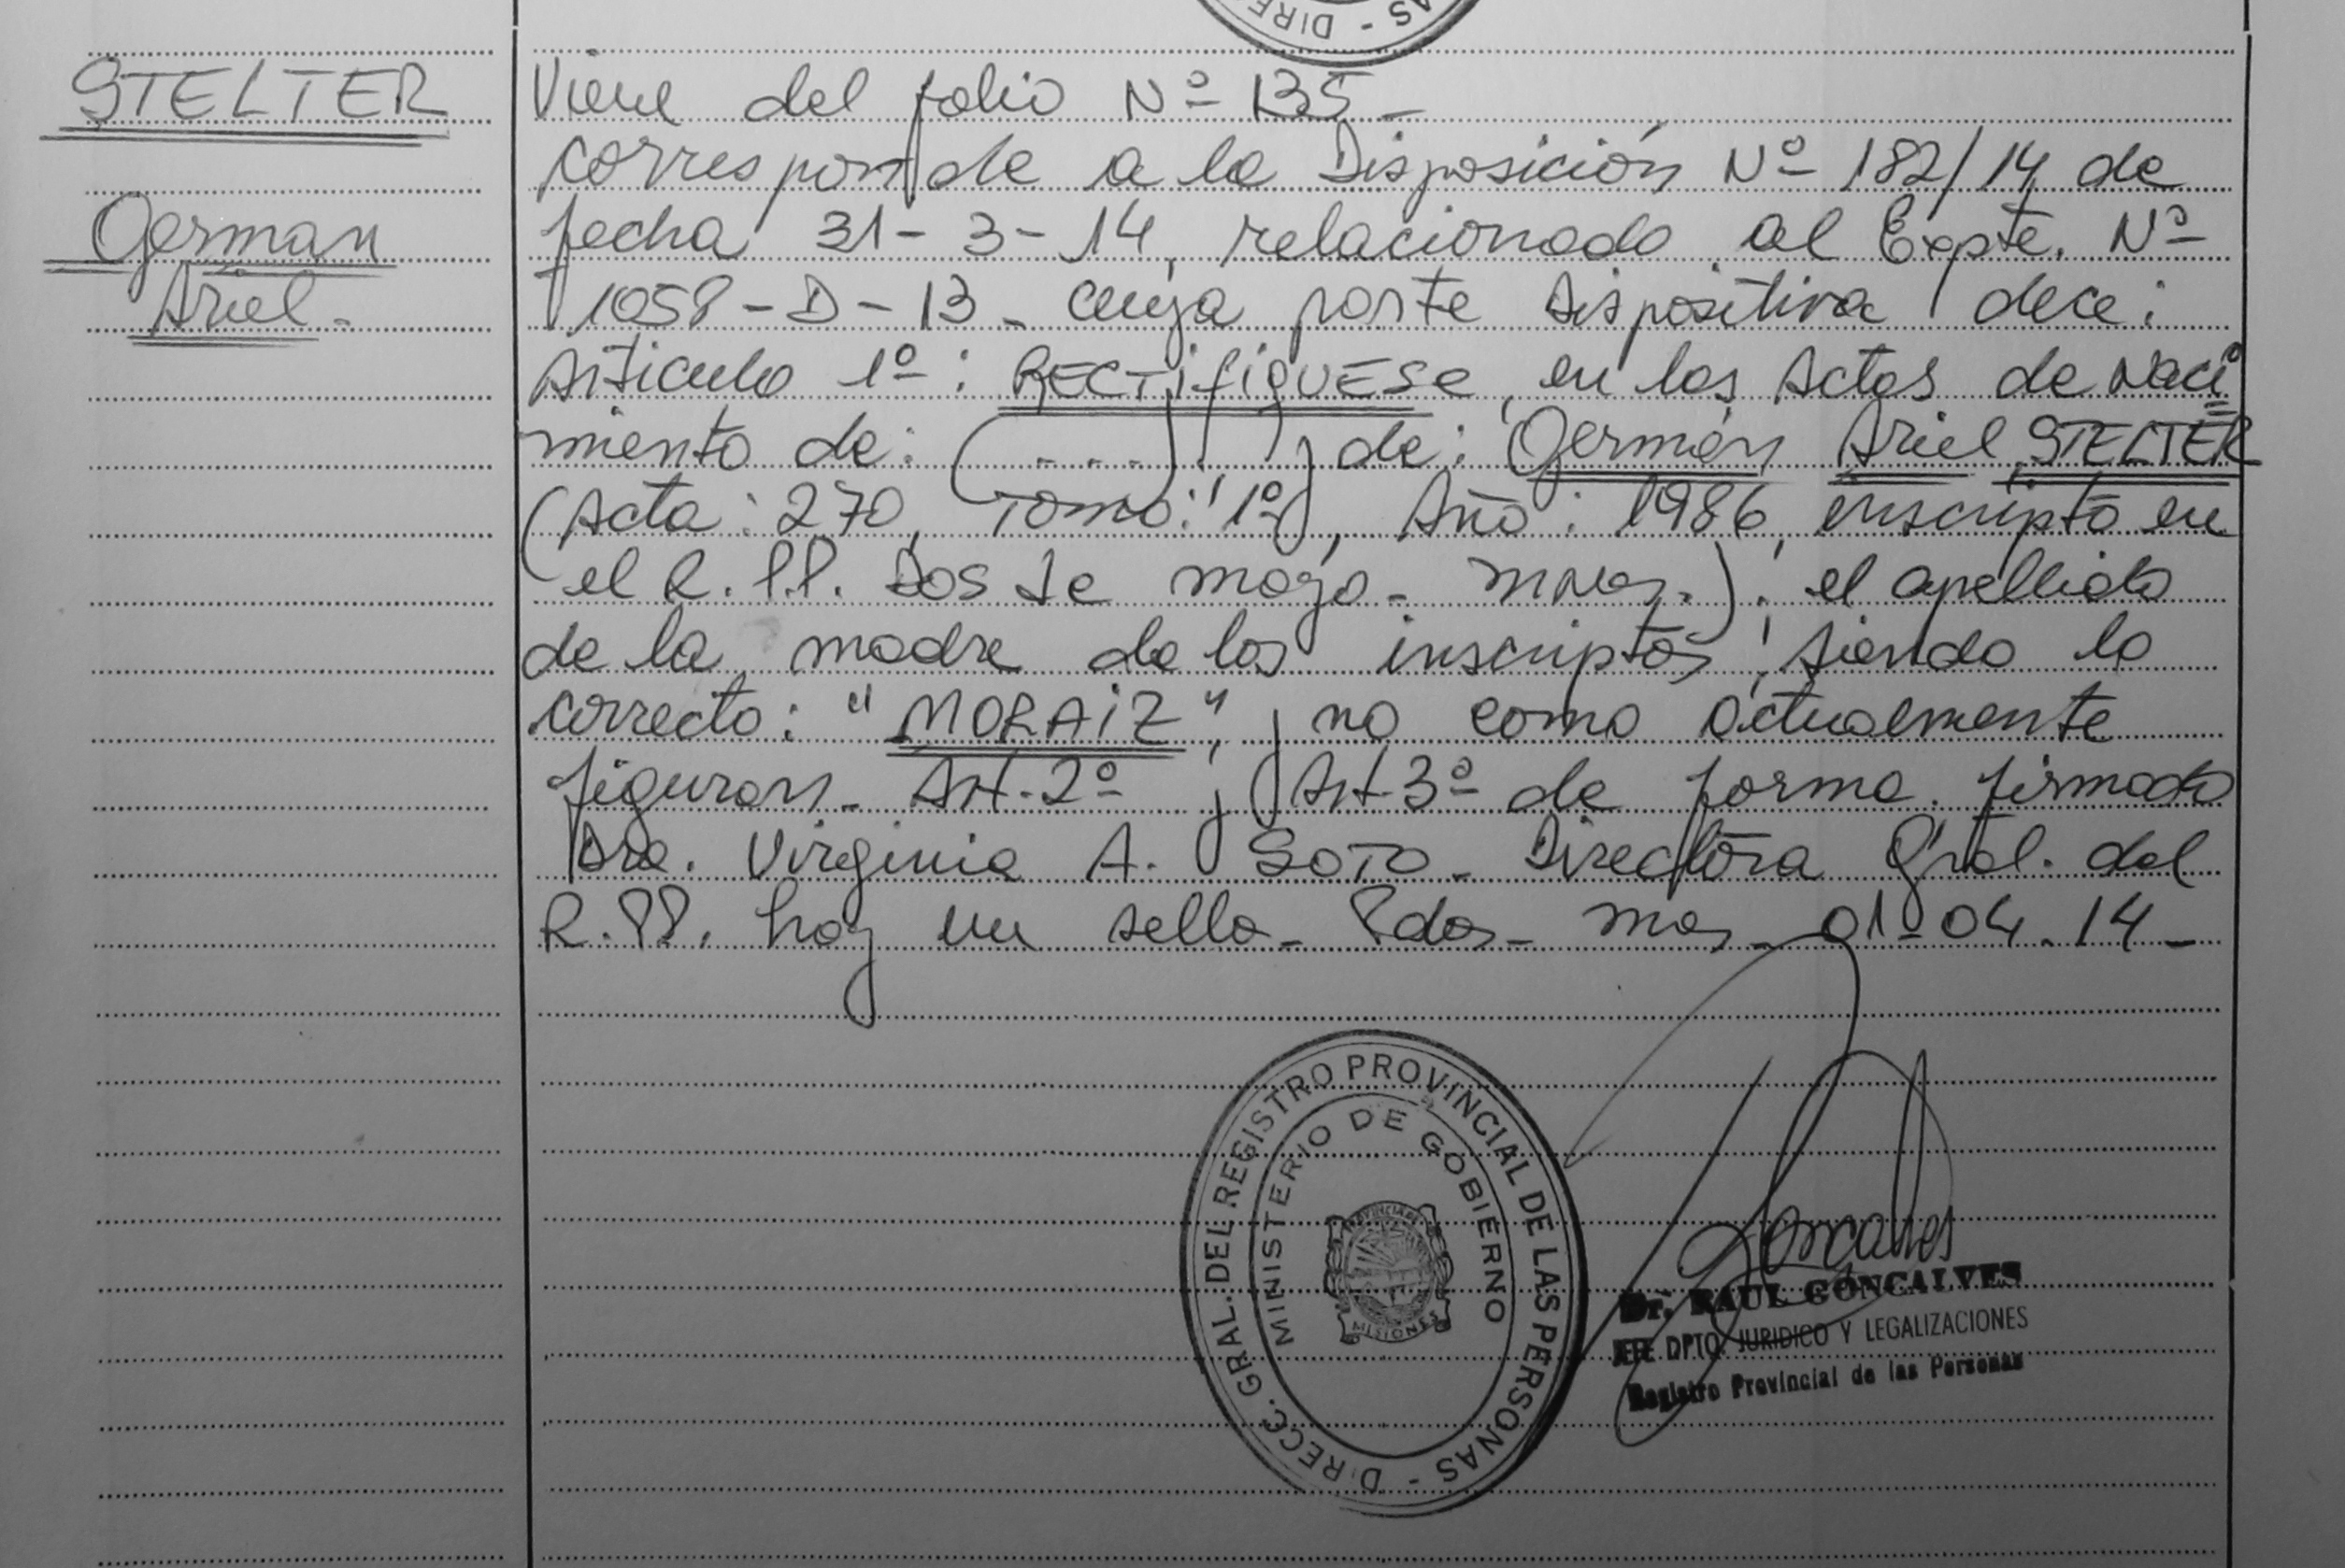 AS - DIREC
STELTER
German
Ariel.-
Viene del folio Nº 135 -
corresponde a la Disposición Nº 182/14 de
fecha 31-3-14, relacionado al Expte. Nº
1058-D-13 - cuya parte dispositiva dece:
Artículo 1º: RECTifiQUESE, en las Actas de Naci=
miento de: (....) y de: Germán Ariel STELTER
(Acta: 270, Tomo: 1º, Año: 1986, inscripto en
el R.P.P. Dos de mayo - Mnes.); el apellido
de la madre de los inscriptos, siendo lo
correcto: "MORAiZ", y no como actualmente
figuran. Art. 2º y Art 3º de forma. firmado
Dra. Virginia A. SOTO - Directora Gral. del
R.PP. hay un sello - Pdas - Mnes - 01-04.14 -
DIRECC. GRAL. DEL REGISTRO PROVINCIAL DE LAS PERSONAS -
MINISTERIO DE GOBIERNO
PROVINCIA DE
MISIONES
Dr. RAUL GONCALVES
JEFE DPTO. JURIDICO Y LEGALIZACIONES
Registro Provincial de las Personas